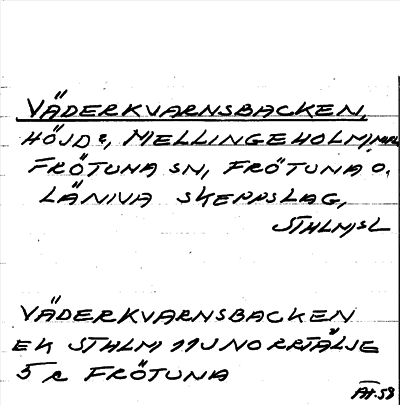 VÄDERKVARNSBACKEN,
HÖJD, MELLINGEHOLM,
FRÖTUNA SN, FRÖTUNA O.
LÄNNA SKEPPSLAG,
STHLMS L
VÄDERKVARNSBACKEN
EK STHLM 11J NORRTÄLJE
5 R FRÖTUNA
ÅH. 58